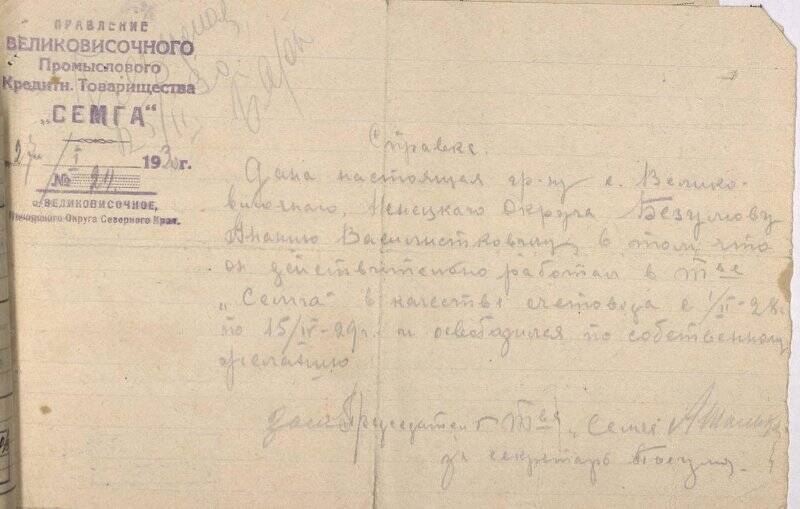 ПРАВЛЕНИЕ
ВЕЛИКОВИСОЧНОГО
Промыслового
Кредитн. Товарищества
„СЕМГА“
27/I 1930г.
№ 24.
с. ВЕЛИКОВИСОЧНОЕ,
Печорского Округа Северного Края.
Справка.
Дана настоящая гр-ну с. Велико-
височного, Ненецкого Округа Безумову
Ананию в том что
он действительно работал в Т-ве
„Семга" в качестве счетовода с 1/II-28г.
по 15/IV-29г. и освободился по собственному
желанию
Председатель Т-ва „Семга"
за секретаря